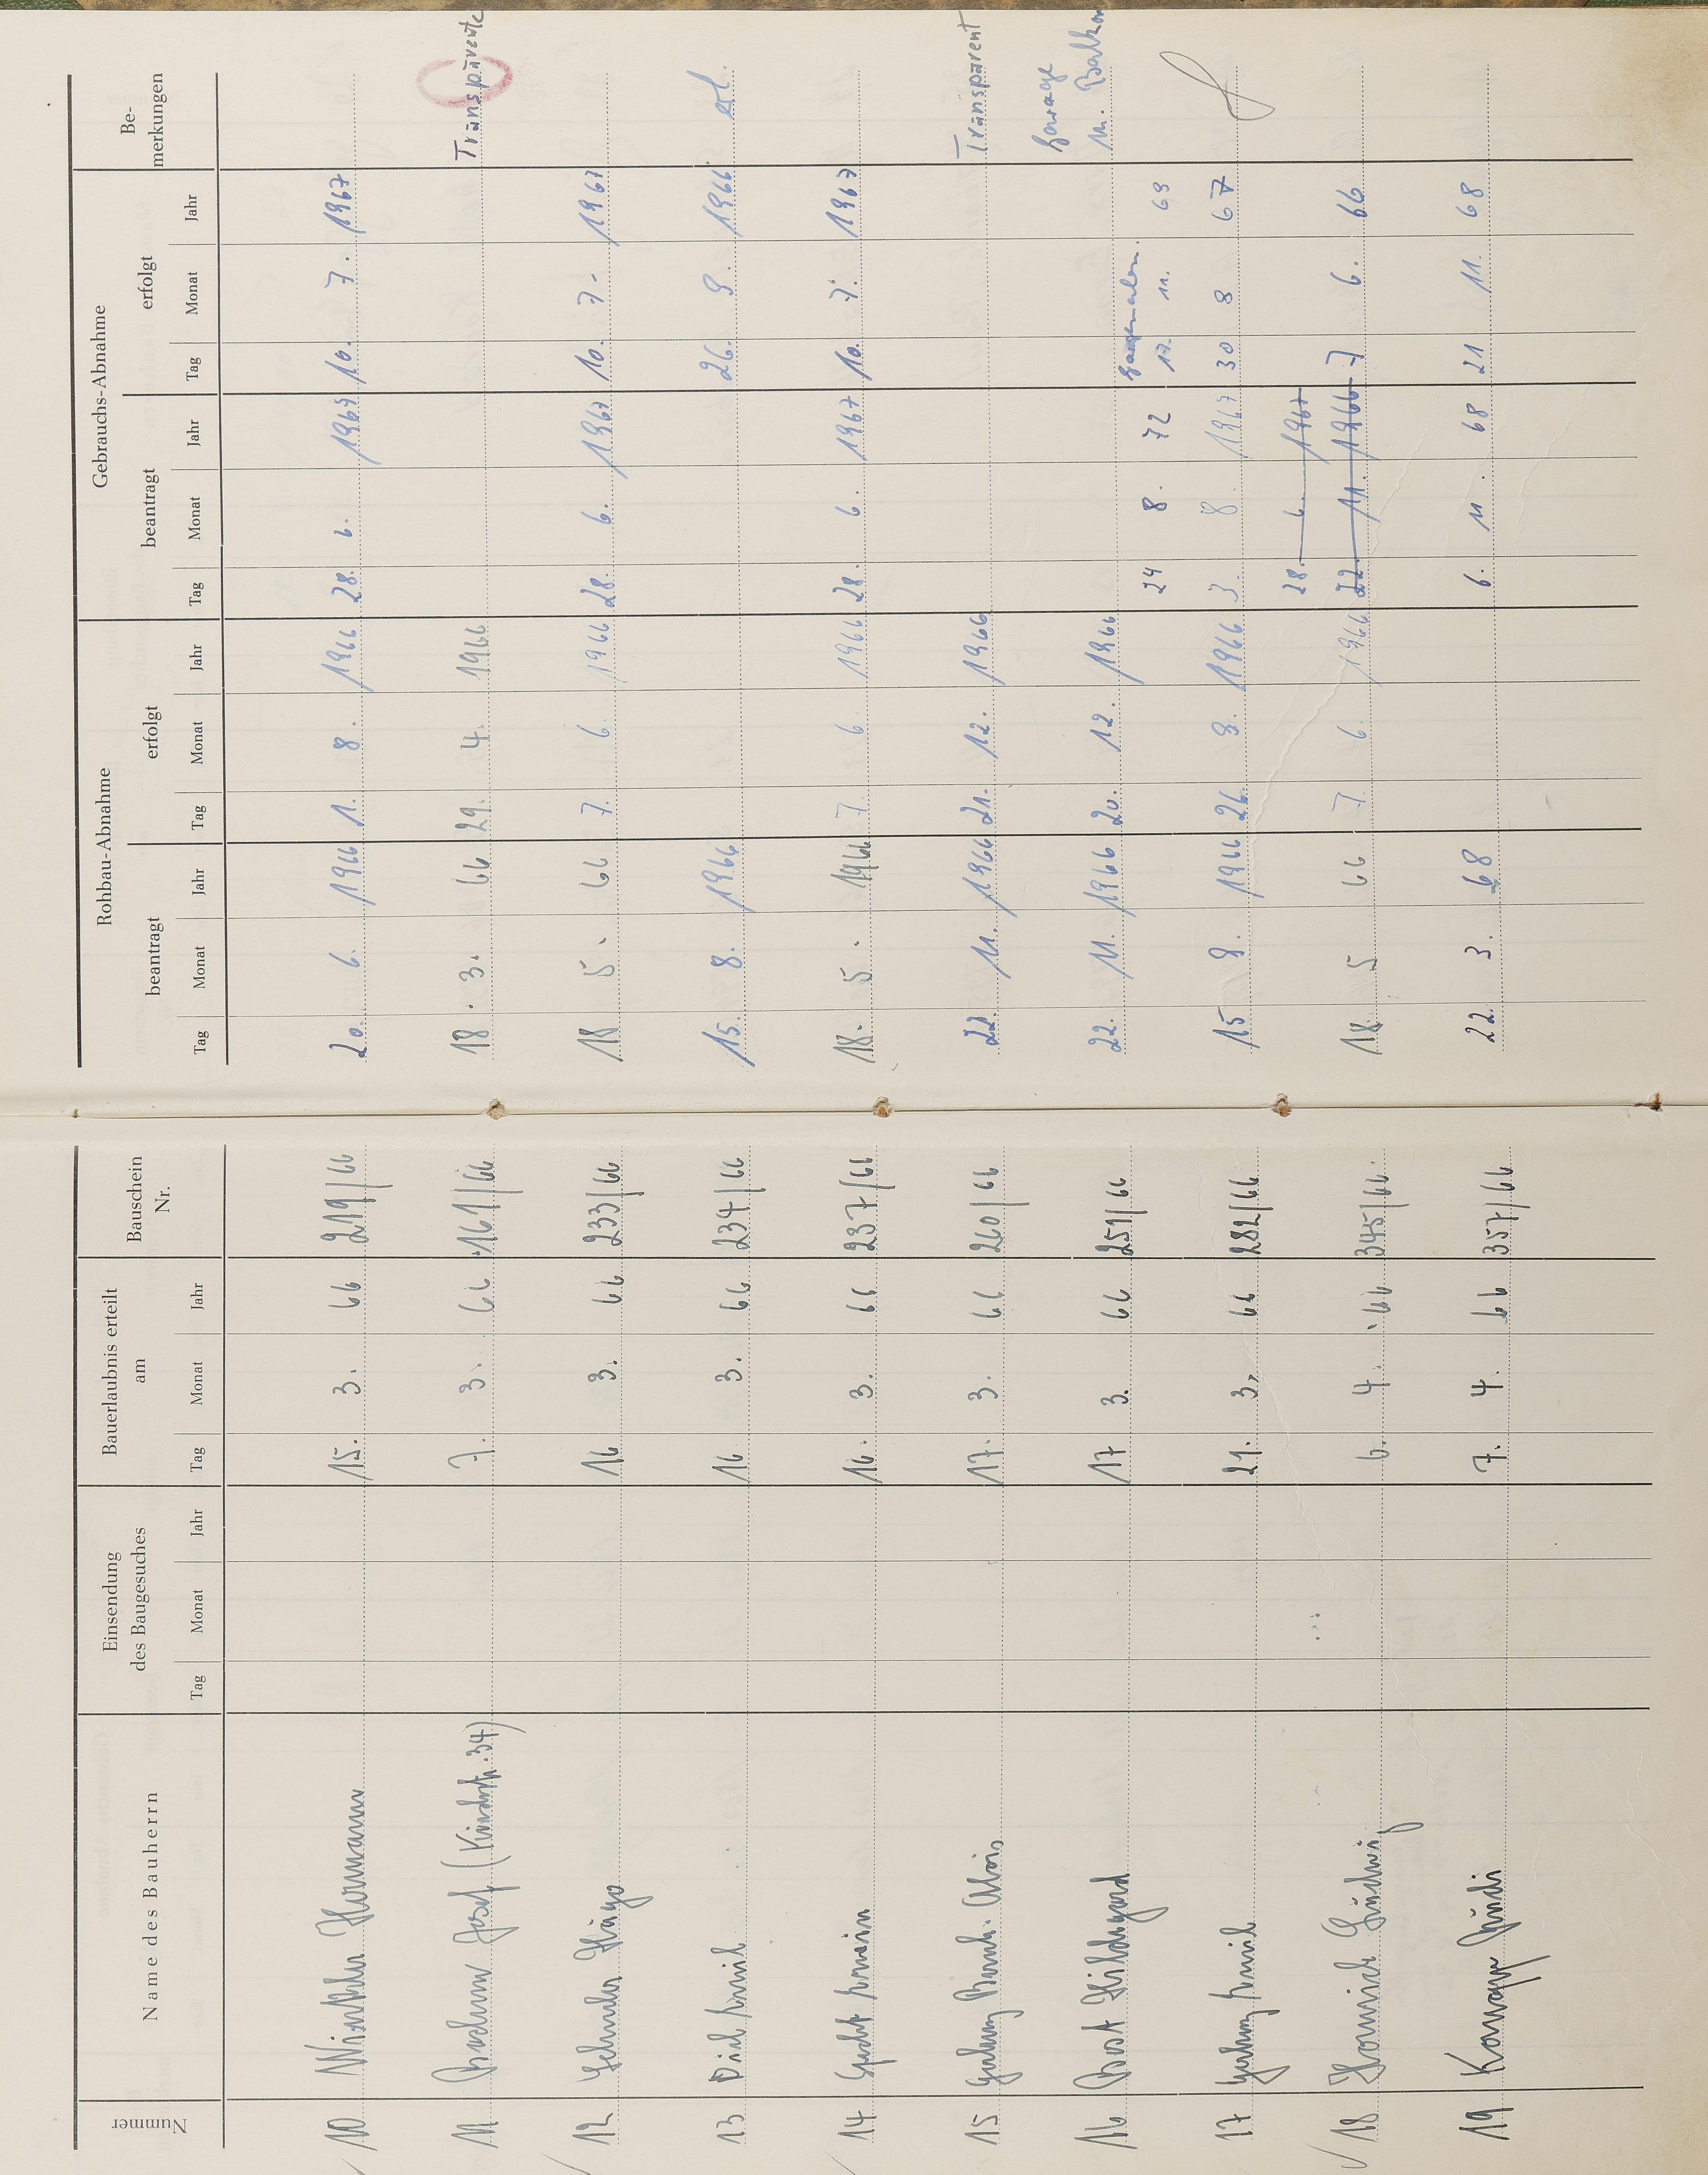 Nummer Name des Bauherrn Einsendung des Baugesuches Bauerlaubnis erteilt am Bauschein Nr. Rohbau-Abnahme Gebrauchs-Abnahme Be-merkungen
beantragt erfolgt beantragt erfolgt
Tag Monat Jahr Tag Monat Jahr Tag Monat Jahr Tag Monat Jahr Tag Monat Jahr Tag Monat Jahr
10 Hermann 15. 3. 66 219/66 20. 6. 1966 1. 8. 1966 28. 6. 1967 10. 7. 1967
11 Josef 7. 3. 66 161/66 18. 3. 66 29. 4. 1966 Transparente
12 Hugo 16 3. 66 233/66 18 5. 66 7. 6. 1966 28. 6. 1967 10. 7. 1967
13 16. 3. 66 234/66 15. 8. 1966 26. 9. 1966 erl.
14 16. 3. 66 237/66 18. 5. 1966 7. 6. 1966 28. 6. 1967 10. 7. 1967
15 Alois 17. 3. 66 260/66 22. 11. 1966 21. 12. 1966 Transparent
Garage
16 Bost Hildegard 17 3. 66 251/66 22. 11. 1966 20. 12. 1966 m. Balkon
24 8. 72 17. 11. 69
17 21. 3. 66 282/66 15 9. 1966 26. 9. 1966 3. 8. 1967 30 8 67
28. 6. 1967
18 Ludwig 6. 4. 66 345/66. 18. 5 66 7. 6. 1966 22. 11. 1966 7 6. 66
19 7. 4. 66 357/66 22. 3. 68 6. 11. 68 21 11. 68